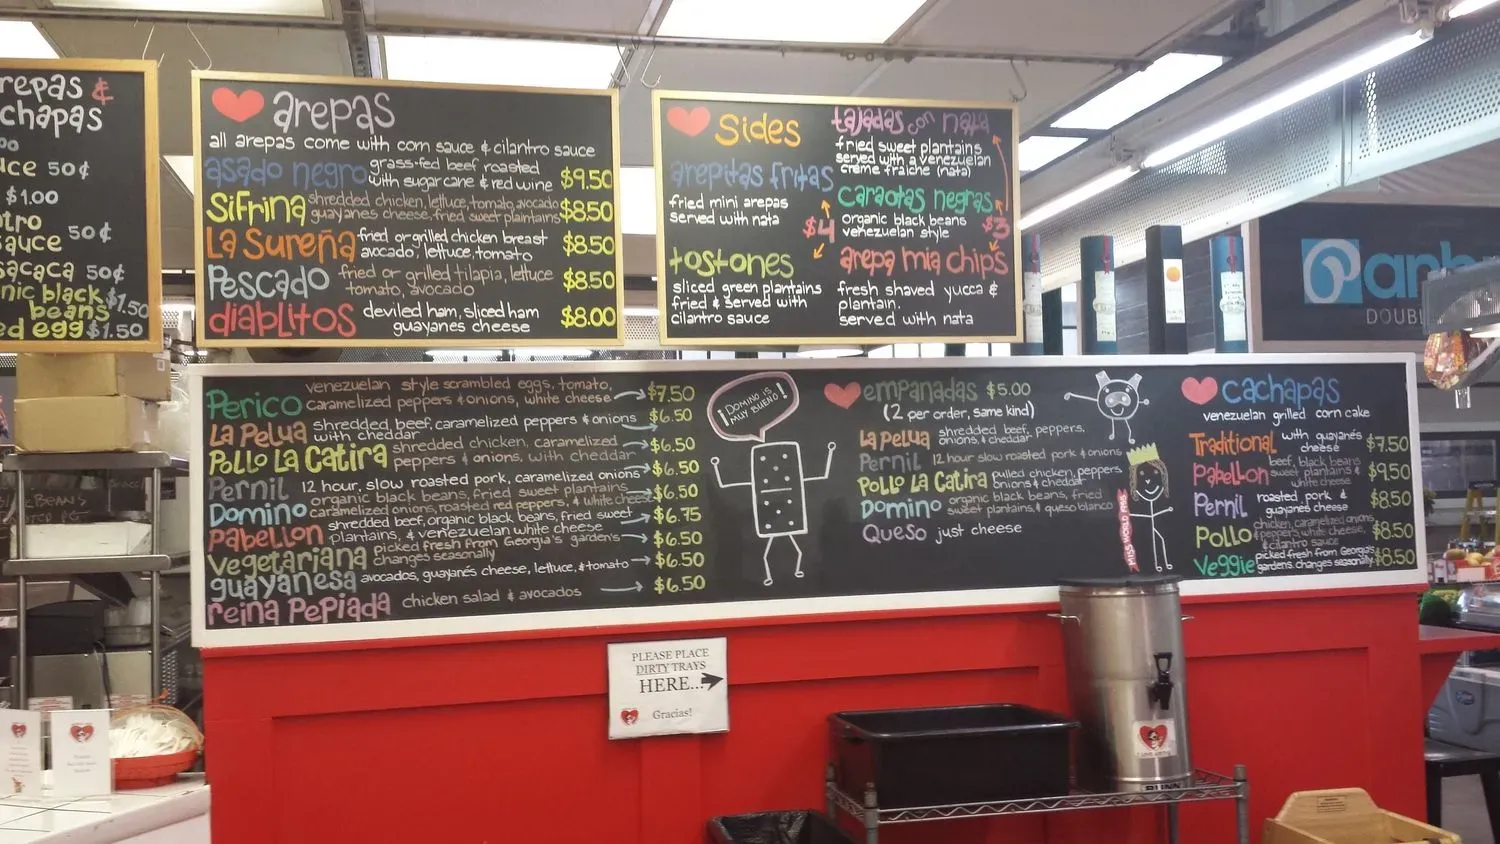 repas &
chapas
uce 50¢
$1.00
tro
sauce 50¢
sacaca 50¢
nic black
beans $1.50
ed egg $1.50
arepas
all arepas come with corn sauce & cilantro sauce
asado negro grass-fed beef roasted
with sugarcane & red wine $9.50
Sifrina shredded chicken, lettuce, tomato, avocado
guayanes cheese, fried sweet plaintains $8.50
La Sureña fried or grilled chicken breast
avocado, lettuce, tomato $8.50
Pescado fried or grilled tilapia, lettuce
tomato, avocado $8.50
diablitos deviled ham, sliced ham
guayanes cheese $8.00
Sides
arepitas fritas
fried mini arepas
served with nata
$4
tostones
sliced green plantains
fried & served with
cilantro sauce
tajadas con nata
fried sweet plantains
served with a venezuelan
creme fraiche (nata)
caraotas negras
organic black beans
venezuelan style
$3
arepa mia chips
fresh shaved yucca &
plantain.
served with nata
Perico venezuelan style scrambled eggs, tomato,
caramelized peppers & onions, white cheese $7.50
La Pelua shredded beef, caramelized peppers & onions
with cheddar $6.50
Pollo La Catira shredded chicken, caramelized
peppers & onions, with cheddar $6.50
Pernil 12 hour, slow roasted pork, caramelized onions $6.50
Domino organic black beans, fried sweet plantains,
caramelized onions, roasted red peppers, & white cheese $6.50
Pabellon shredded beef, organic black beans, fried sweet
plantains, & venezuelan white cheese $6.75
Vegetariana picked fresh from Georgia's gardens
changes seasonally $6.50
guayanesa avocados, guayanés cheese, lettuce, & tomato $6.50
reina Pepiada chicken salad & avocados $6.50
¡DOMINO IS
MUY BUENO!
empanadas $5.00
(2 per order, same kind)
La Pelua shredded beef, peppers,
onions, & cheddar
Pernil 12 hour slow roasted pork & onions
Pollo La Catira pulled chicken, peppers
onions & cheddar
Domino organic black beans, fried
sweet plantains, & queso blanco
Queso just cheese
MISS WORLD
cachapas
venezuelan grilled corn cake
Traditional with guayanés
cheese $7.50
Pabellon beef, black beans
sweet plantains &
white cheese $9.50
Pernil roasted pork &
guayanes cheese $8.50
Pollo chicken, caramelized onions,
& peppers, white cheese,
& cilantro sauce $8.50
Veggie picked fresh from Georgia's
gardens. changes seasonally $8.50
PLEASE PLACE
DIRTY TRAYS
HERE...
Gracias!
BUNN
anh
DOUB